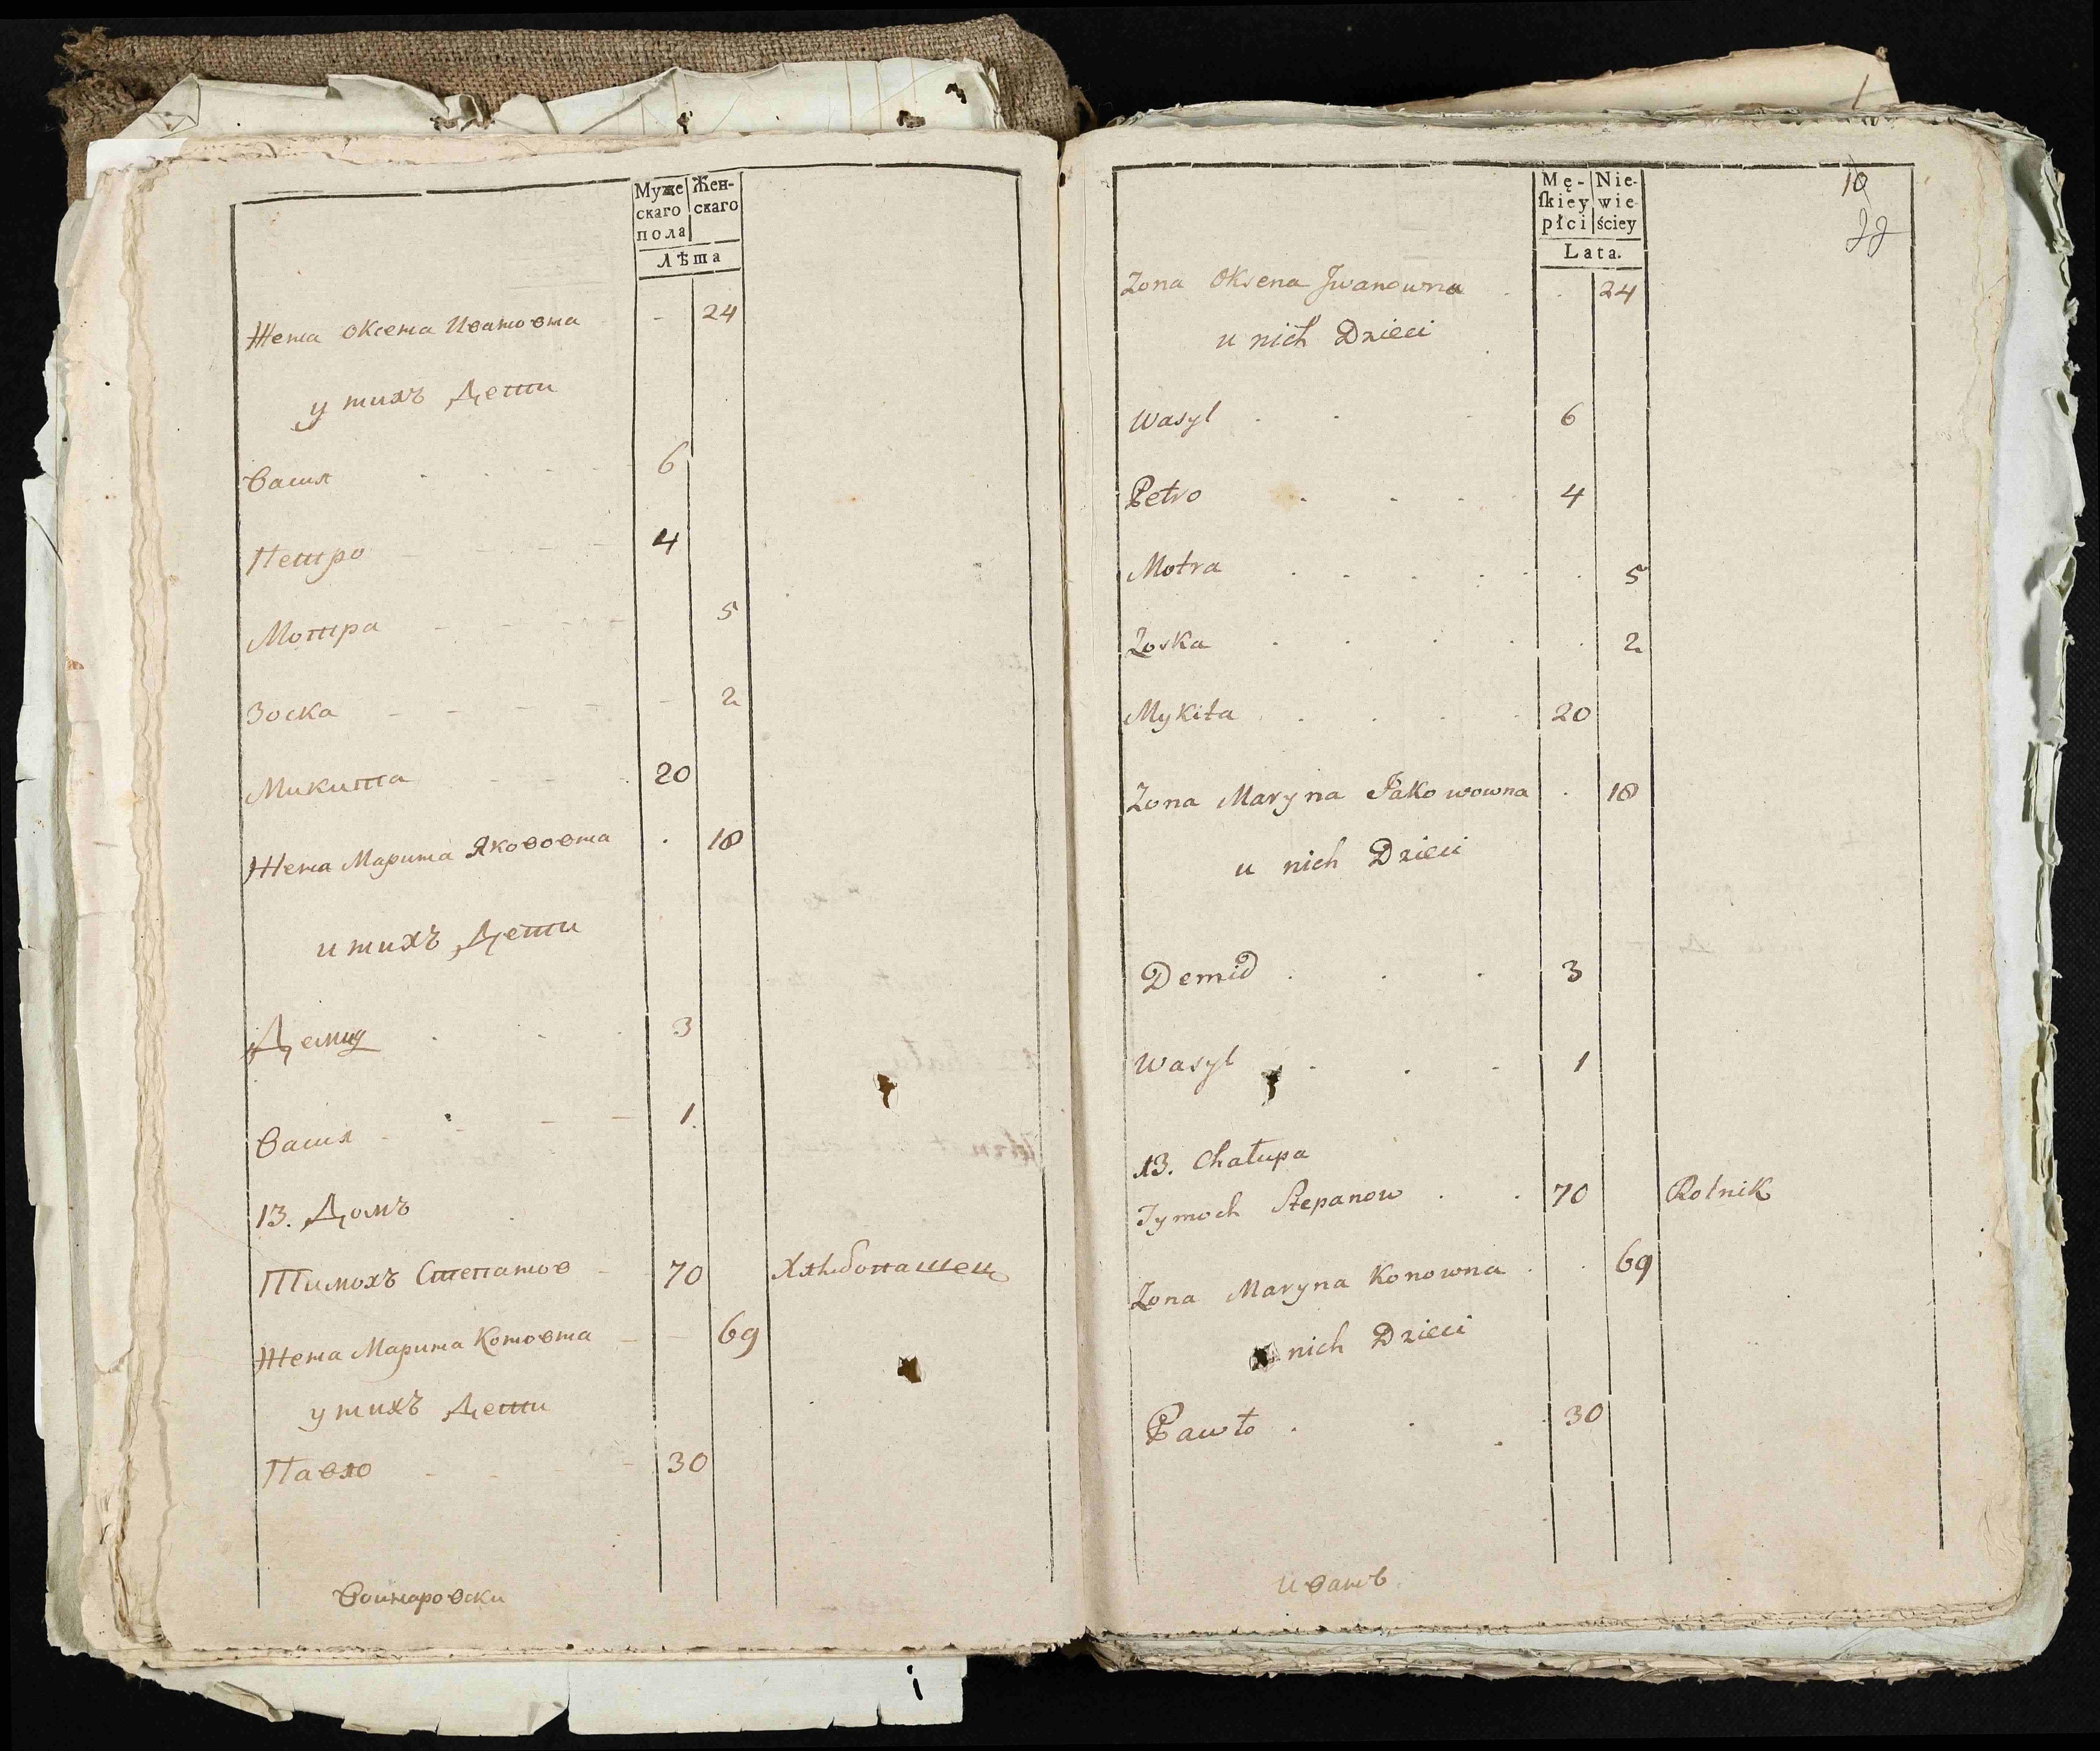 Муже скаго пола
Женскаго
Лѣта
Жена Оксена Ивановна - 24
у нихъ Дети
Васил 6
Петро 4
Мотра 5
Зоска 2
Микита 20
Жена Марина Якововна 18
и нихъ Дети
Демид 3
Васил 1
13. Домъ
Тимохъ Степанов 70 Хлѣбопашец
Жена Марина Коновна 69
у нихъ Дети
Павло 30
Воинаровски
Mę-ſkiey płci
Nie-wie-ściey
Lata.
10
Zona Oksena Jwanowna 24
u nich Dzieci
Wasyl 6
Petro 4
Motra 5
Zoska 2
Mykita 20
Zona Maryna Jakowowna 18
u nich Dzieci
Demid 3
Wasyl 1
13. Chałupa
Tymoch Stepanow 70 Rolnik
Zona Maryna Konowna 69
nich Dzieci
Pawło 30
иванъ